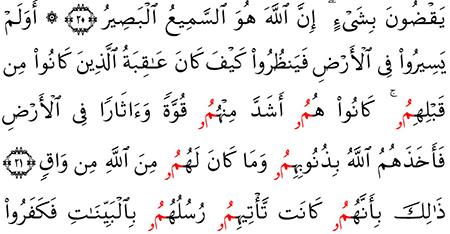 يَقۡضُونَ بِشَيۡءٍۗ إِنَّ ٱللَّهَ هُوَ ٱلسَّمِيعُ ٱلۡبَصِيرُ ﴿٢٠﴾ ۞ أَوَلَمۡ
يَسِيرُواْ فِي ٱلۡأَرۡضِ فَيَنظُرُواْ كَيۡفَ كَانَ عَٰقِبَةُ ٱلَّذِينَ كَانُواْ مِن
قَبۡلِهِمُۥۚ كَانُواْ هُمُۥ أَشَدَّ مِنۡهُمُۥ قُوَّةٗ وَءَاثَارٗا فِي ٱلۡأَرۡضِ
فَأَخَذَهُمُ ٱللَّهُ بِذُنُوبِهِمُۥ وَمَا كَانَ لَهُمُۥ مِنَ ٱللَّهِ مِن وَاقٖ ﴿٢١﴾
ذَٰلِكَ بِأَنَّهُمُۥ كَانَت تَّأۡتِيهِمُۥ رُسُلُهُمُۥ بِٱلۡبَيِّنَٰتِ فَكَفَرُواْ